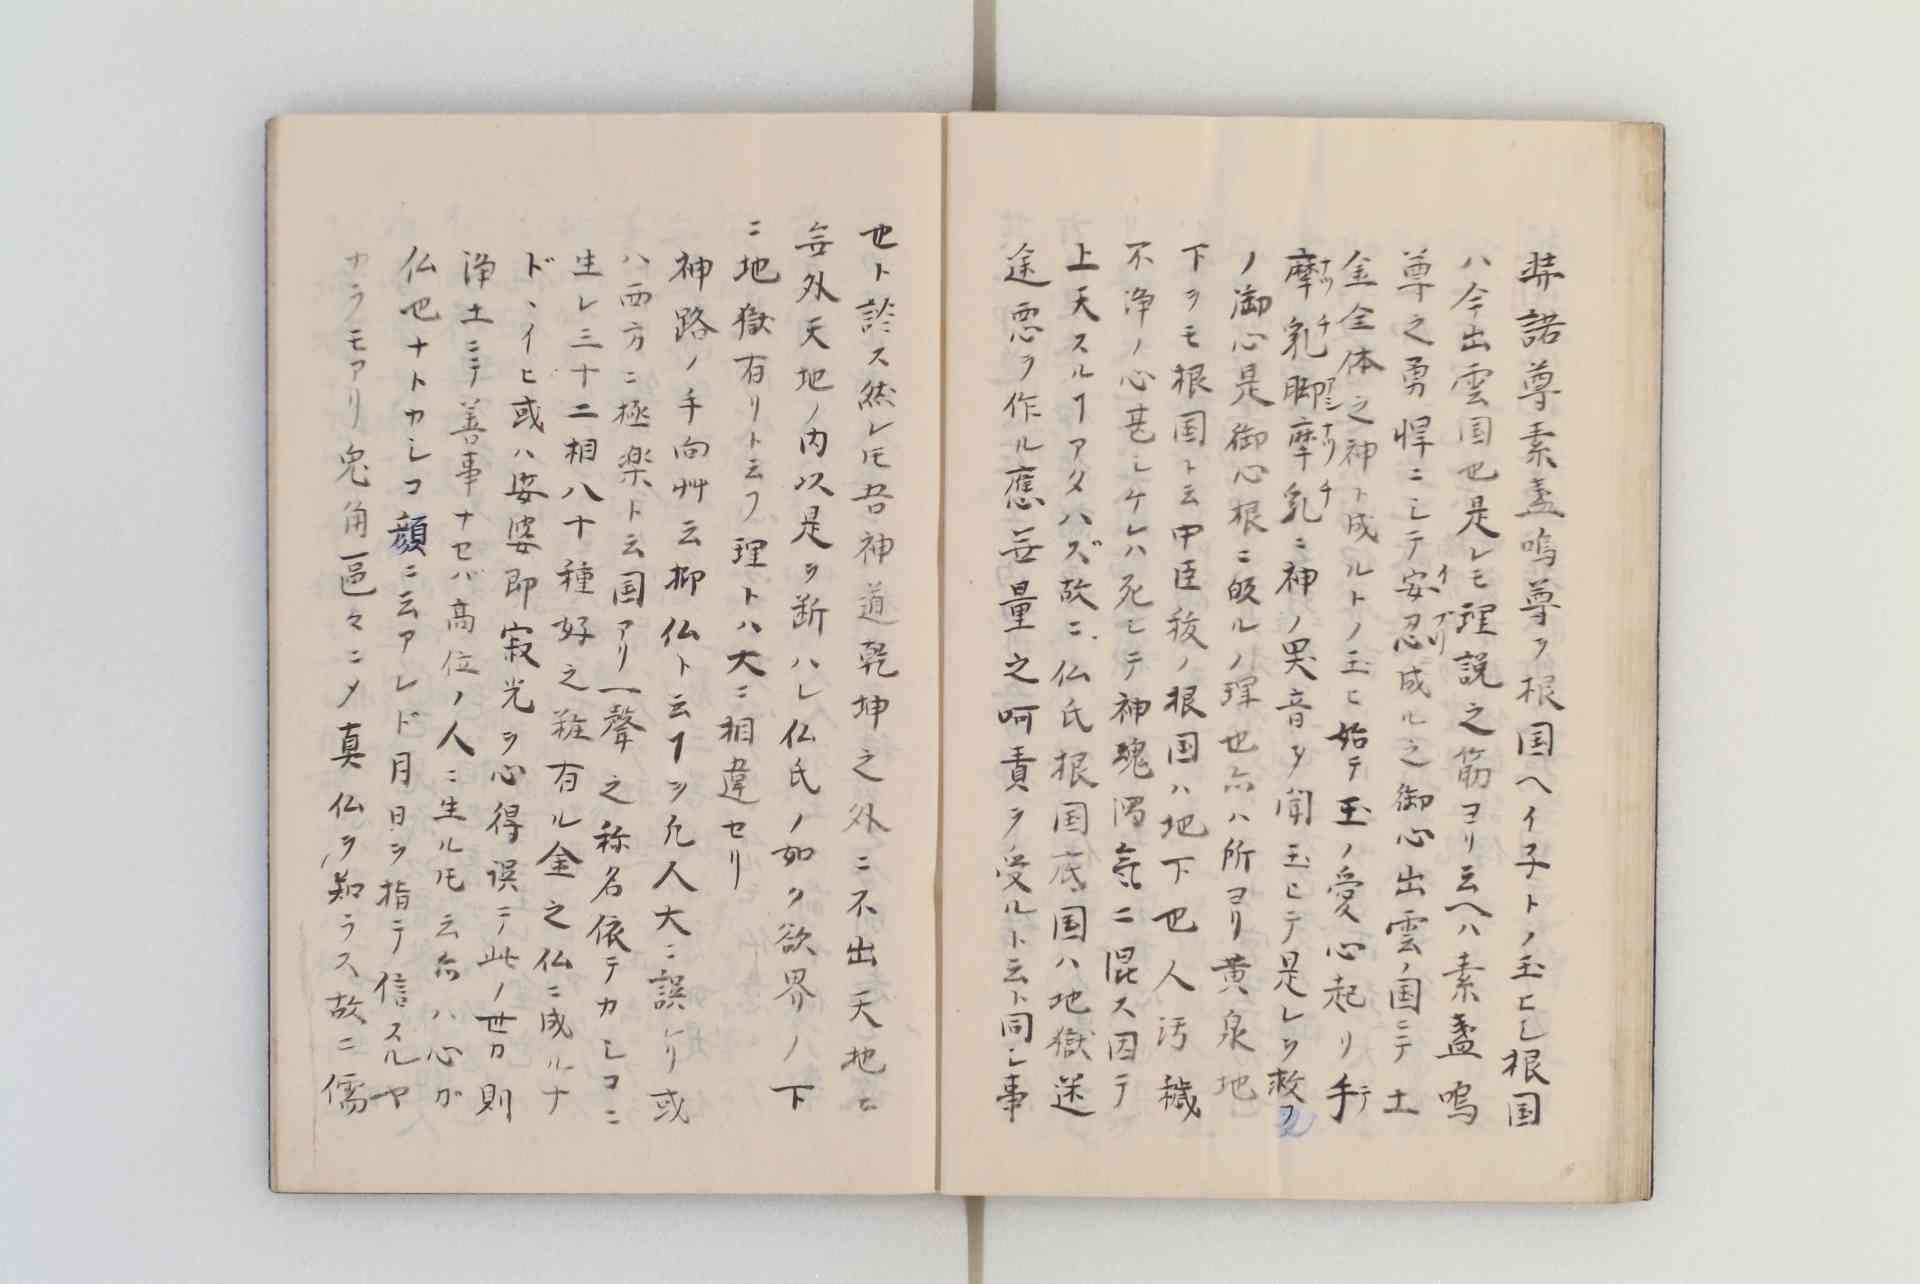 弉諾尊素盞嗚尊ヲ根国ヘイ子トノ玉ヒし根国
ハ今出雲国也是レモ理説之筋ヨリ云ヘハ素盞嗚
尊之勇悍ニシテ安忍成ル之御心出雲ノ国ニテ土
金全体之神ト成ルトノ玉ヒ始テ玉ノ愛心起リ手
摩乳脚摩乳ニ神ノ異音ヲ聞玉ヒテ是レヲ救フ
ノ御心是御心根ニ皈ルノ理也尓ハ所ヨリ黄泉地
下ヲモ根国ト云中臣祓ノ根国ハ地下也人汚穢
不浄ノ心甚シケレハ死シテ神魂濁気ニ混ス因テ
上天スルヿアタハズ故ニ仏氏根国底国ハ地獄送
途悪ヲ作ル應無量之呵責ヲ受ルト云ト同シ事
也ト談ス然レモ吾神道乾坤之外ニ不出天地ニ
無外天地ノ内以是ヲ断ハレ仏氏ノ如ク欲界ノ下
ニ地獄有リト云フ理トハ大ニ相違セリ
神路ノ手向艸云抑仏ト云ヿヲ凡人大ニ誤ケリ或
ハ西方ニ極楽ト云国アリ一聲之称名依テカシコニ
生レ三十二相八十種好之粧有ル金之仏ニ成ルナ
ドヽイヒ或ハ娑婆即寂光ヲ心得誤テ此ノ世カ則
浄土ニテ善事ナセバ高位ノ人ニ生ルモ云尓ハ心ガ
仏也ナトカシコ顔ニ云アレド月日ヲ指テ信スルヤ
カラモアリ兎角區々ニメ真仏ヲ知ラス故ニ儒